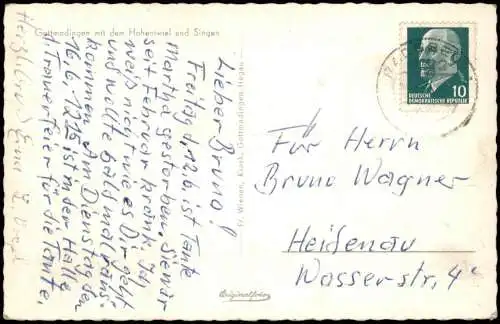 Gottmadingen mit dem Hohentwiel und Singen
Lieber Bruno!
Freitag, d. 12.6. ist Tante
Martha gestorben. Sie war
seit Februar krank. Ich
weiß nicht wie es Dir geht
und wollte bald mal raus-
kommen. Am Dienstag den
16.6. 12.15 ist in der Halle
d. Trauerfeier für die Tante.
Herzl. Grüß
Fr. Wiesen, Kiosk, Gottmadingen Hegau
Originalfoto
10
DEUTSCHE
DEMOKRATISCHE REPUBLIK
Für Herrn
Bruno Wagner
Heidenau
Wasserstr. 4c